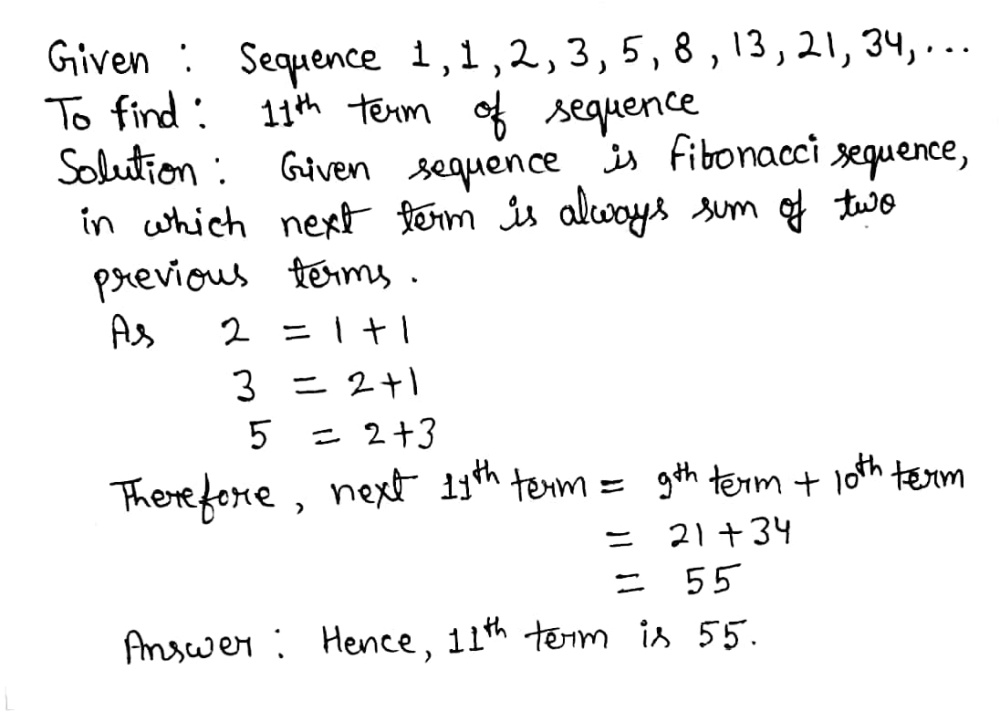 Given : Sequence 1, 1, 2, 3, 5, 8, 13, 21, 34, ...
To find : 11th term of sequence
Solution : Given sequence is fibonacci sequence,
in which next term is always sum of two
previous terms.
As 2 = 1 + 1
3 = 2+1
5 = 2+3
Therefore, next 11th term = 9th term + 10th term
= 21 + 34
= 55
Answer : Hence, 11th term is 55.